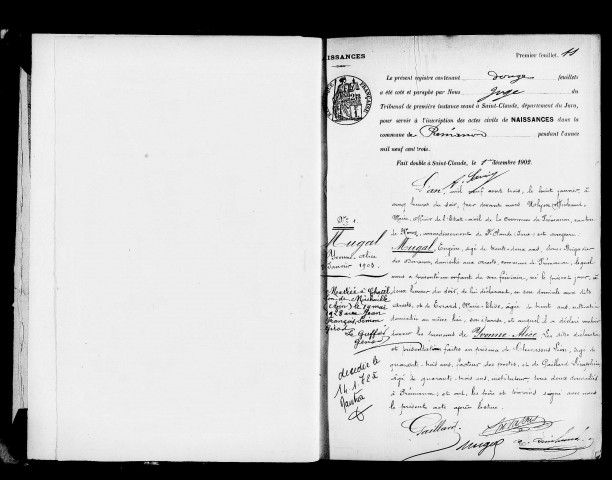 NAISSANCES
Premier feuillet. 11
Le présent registre contenant douze feuillets
a été coté et paraphé par Nous Juge du
Tribunal de première instance séant à Saint-Claude, département du Jura,
pour servir à l'inscription des actes civils de NAISSANCES dans la
commune de Prémanon pendant l'année
mil neuf cent trois.
Fait double à Saint-Claude, le 1er décembre 1902.
L'an mil neuf cent trois, le huit janvier, à
onze heures du soir, par devant nous
Maire, officier de l'Etat-civil de la commune de Prémanon, canton
de Morez, arrondissement de St Claude, Jura, est comparu
Mugal, Eugène, âgé de trente-deux ans, Sous-Brigadier
des douanes, domicilié aux commune de Prémanon, lequel
nous a présenté un enfant du sexe féminin, né le présent jour, à
deux heures du soir, de lui déclarant, en son domicile aux dits
et de Marie Elise, âgée de trente ans,
domiciliée au même lieu, son épouse, et auquel il a déclaré vouloir
donner les prénoms de Yvonne Alice. Les dites déclaration
et présentation faites en présence de Léon, âgé
de quarante-trois ans, facteur des postes, et de Gaillard Séraphin
âgé de quarante-trois ans, instituteur, tous deux domiciliés
à Prémanon; et ont, les père et témoins signé avec nous
le présent acte après lecture.
Gaillard
Mugal
No 1.
Mugal
Yvonne Alice
8 janvier 1903.
Mariée à Chatil
lon de Michaille
(Ain) le 19 mai
1928 avec Jean
François Simon
Le Greffier
décédée le
14.1.72 à
Nantua